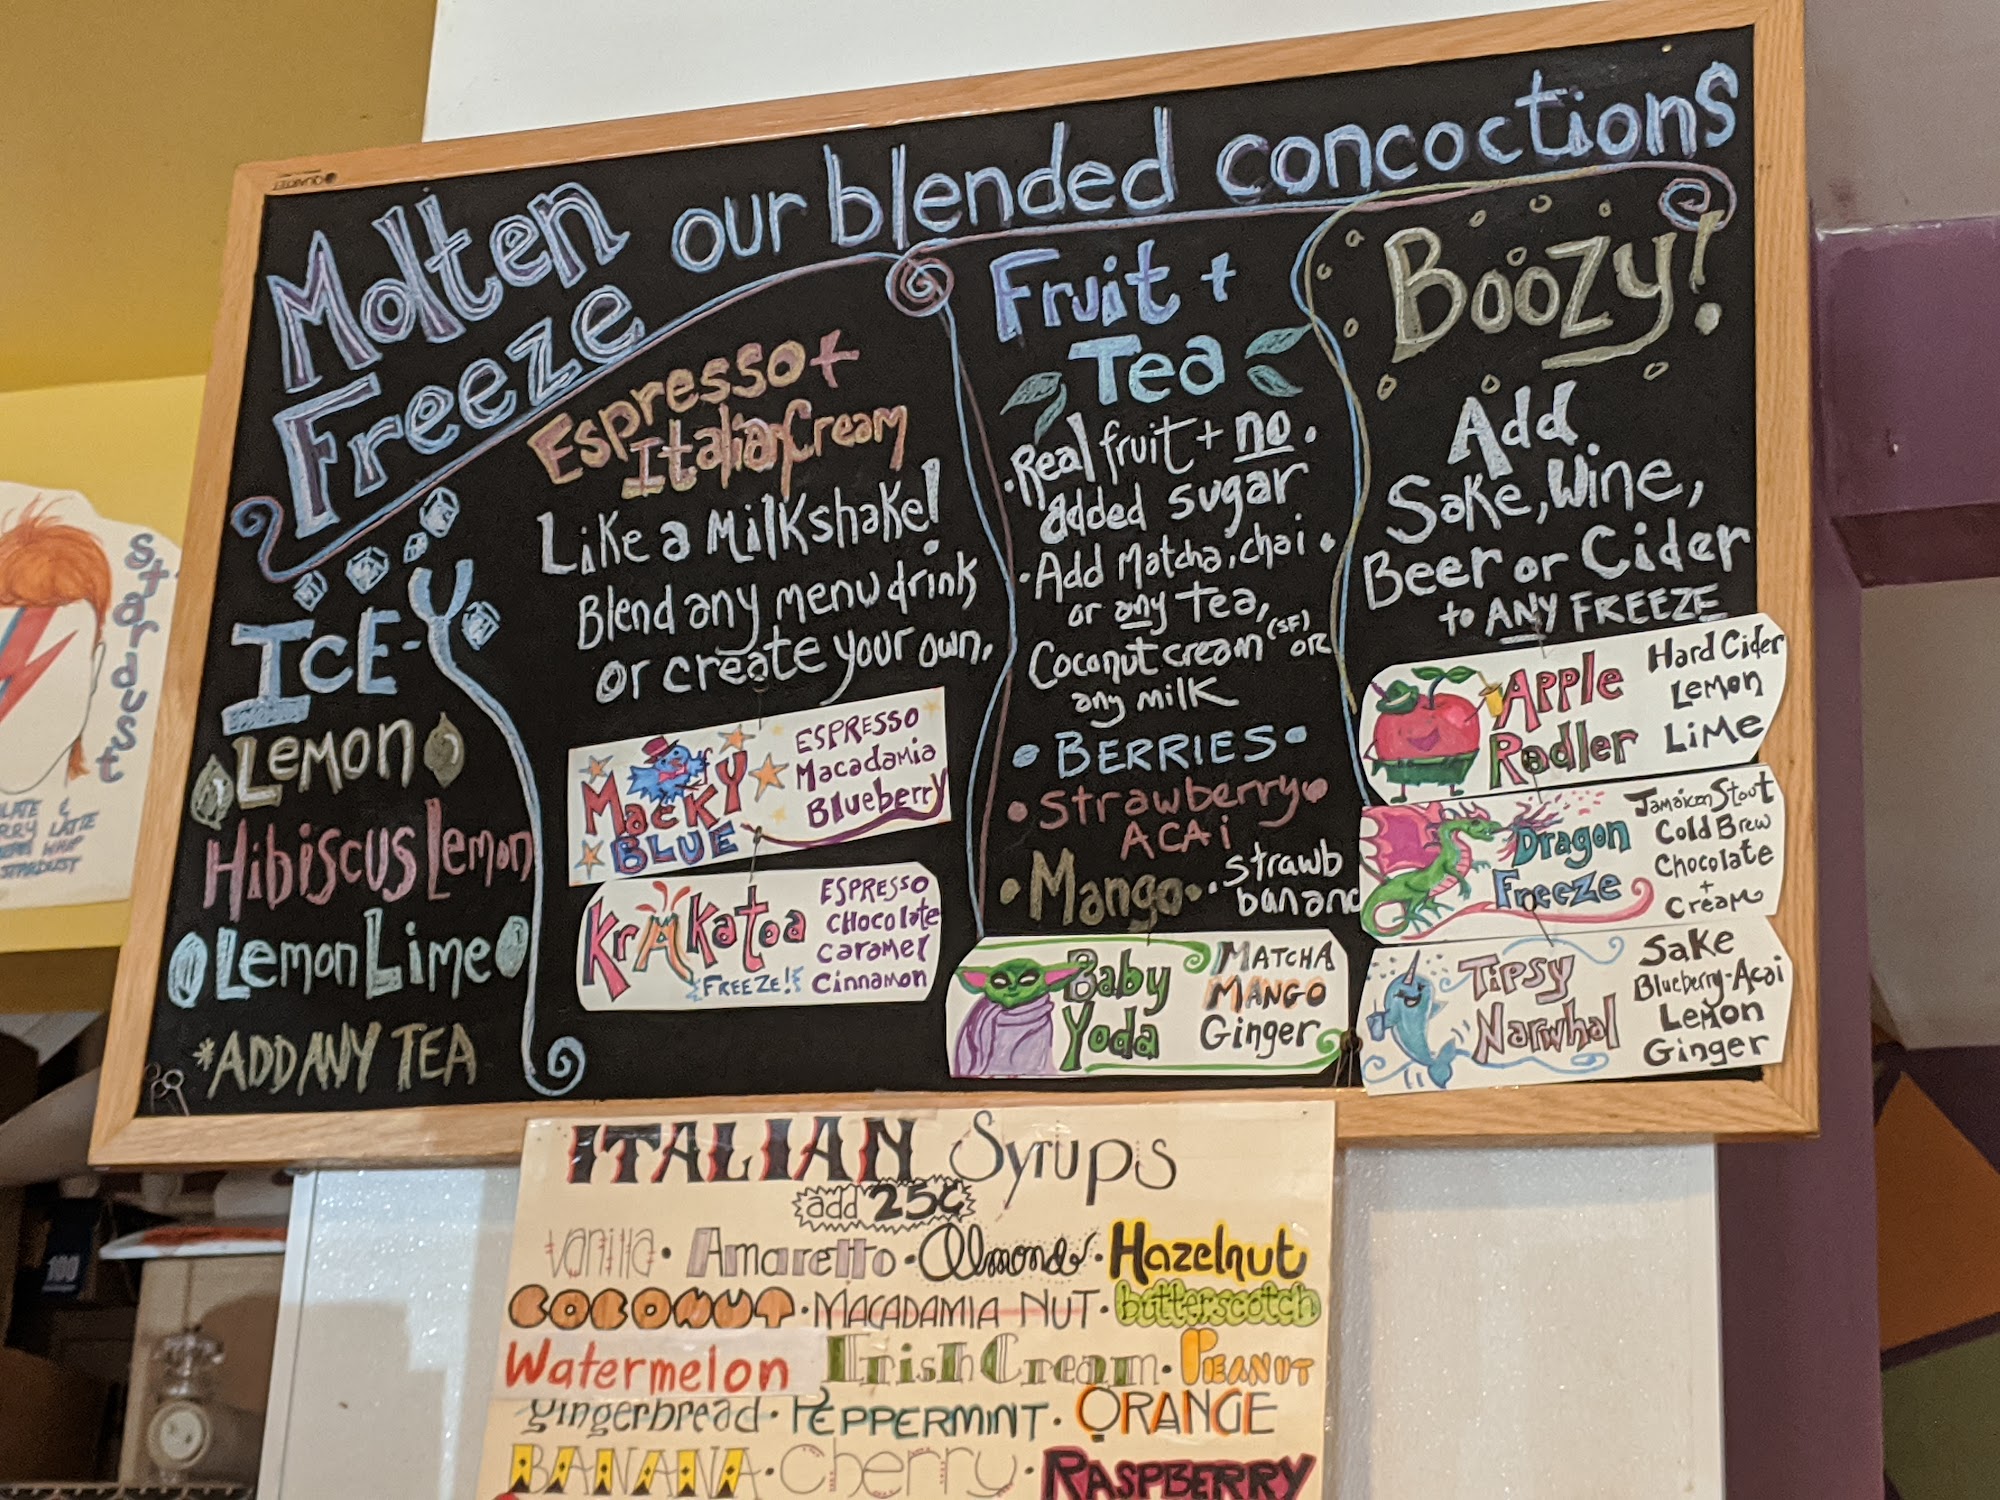 Molten
Freeze
our blended concoctions
ICE-Y
Lemon
Hibiscus Lemon
Lemon Lime
*ADD ANY TEA
Espresso +
Italian Cream
Like a Milkshake!
Blend any menu drink
or create your own.
Macky
BLUE
ESPRESSO
Macadamia
Blueberry
Krakatoa
FREEZE!
ESPRESSO
CHOCOLATE
Caramel
Cinnamon
Fruit +
Tea
• Real fruit + no •
added sugar
• Add Matcha, chai •
or any tea,
Coconut cream (SF) or
any milk
• BERRIES •
• Strawberry •
ACAi
• Mango •
• Strawb
banana
Baby
Yoda
MATCHA
MANGO
Ginger
Boozy!
Add
Sake, Wine,
Beer or Cider
to ANY FREEZE
Apple
Radler
Hard Cider
Lemon
Lime
Dragon
Freeze
Jamaican Stout
Cold Brew
Chocolate
+
Cream
Tipsy
Narwhal
Sake
Blueberry-Acai
Lemon
Ginger
QUARTET
Stardust
LATTE
STARDUST
100
ITALIAN Syrups
add 25¢
Vanilla • Amaretto • Almond • Hazelnut
COCONUT • MACADAMIA NUT • butterscotch
Watermelon Irish Cream • PEANUT
gingerbread • PEPPERMINT • ORANGE
BANANA • Cherry • RASPBERRY